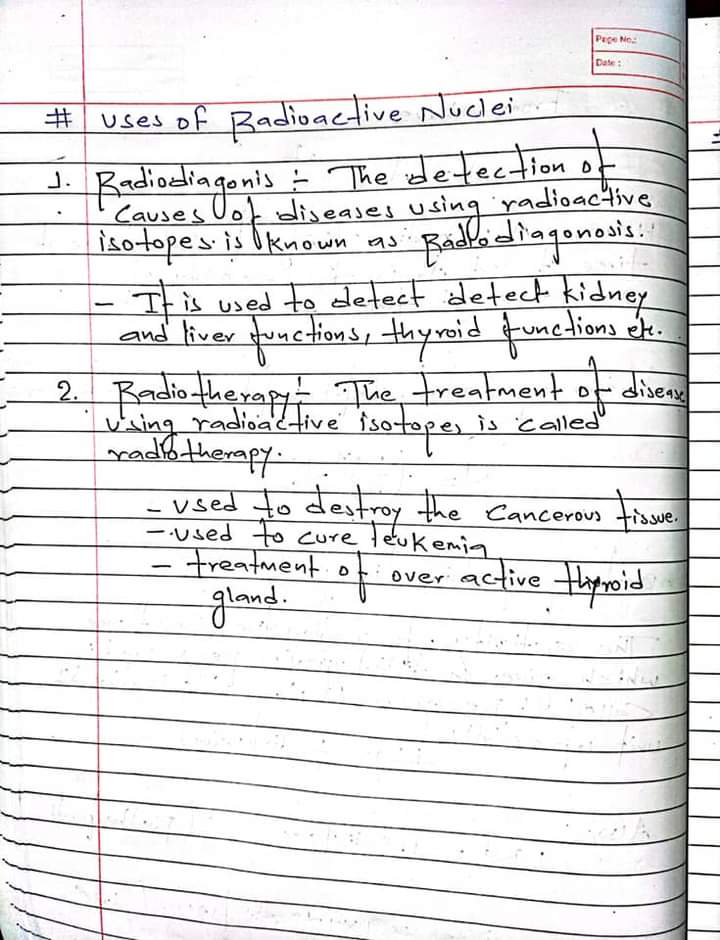 Page No.:
Date :
# Uses of Radioactive Nuclei
1. Radiodiagonis :- The detection of
causes of diseases using radioactive
isotopes is known as Radiodiagonosis.
- It is used to detect detect kidney
and liver functions, thyroid functions etc.
2. Radiotherapy :- The treatment of disease
using radioactive isotopes is called
radiotherapy.
- used to destroy the cancerous tissue.
- used to cure leukemia
- treatment of over active thyroid
gland.